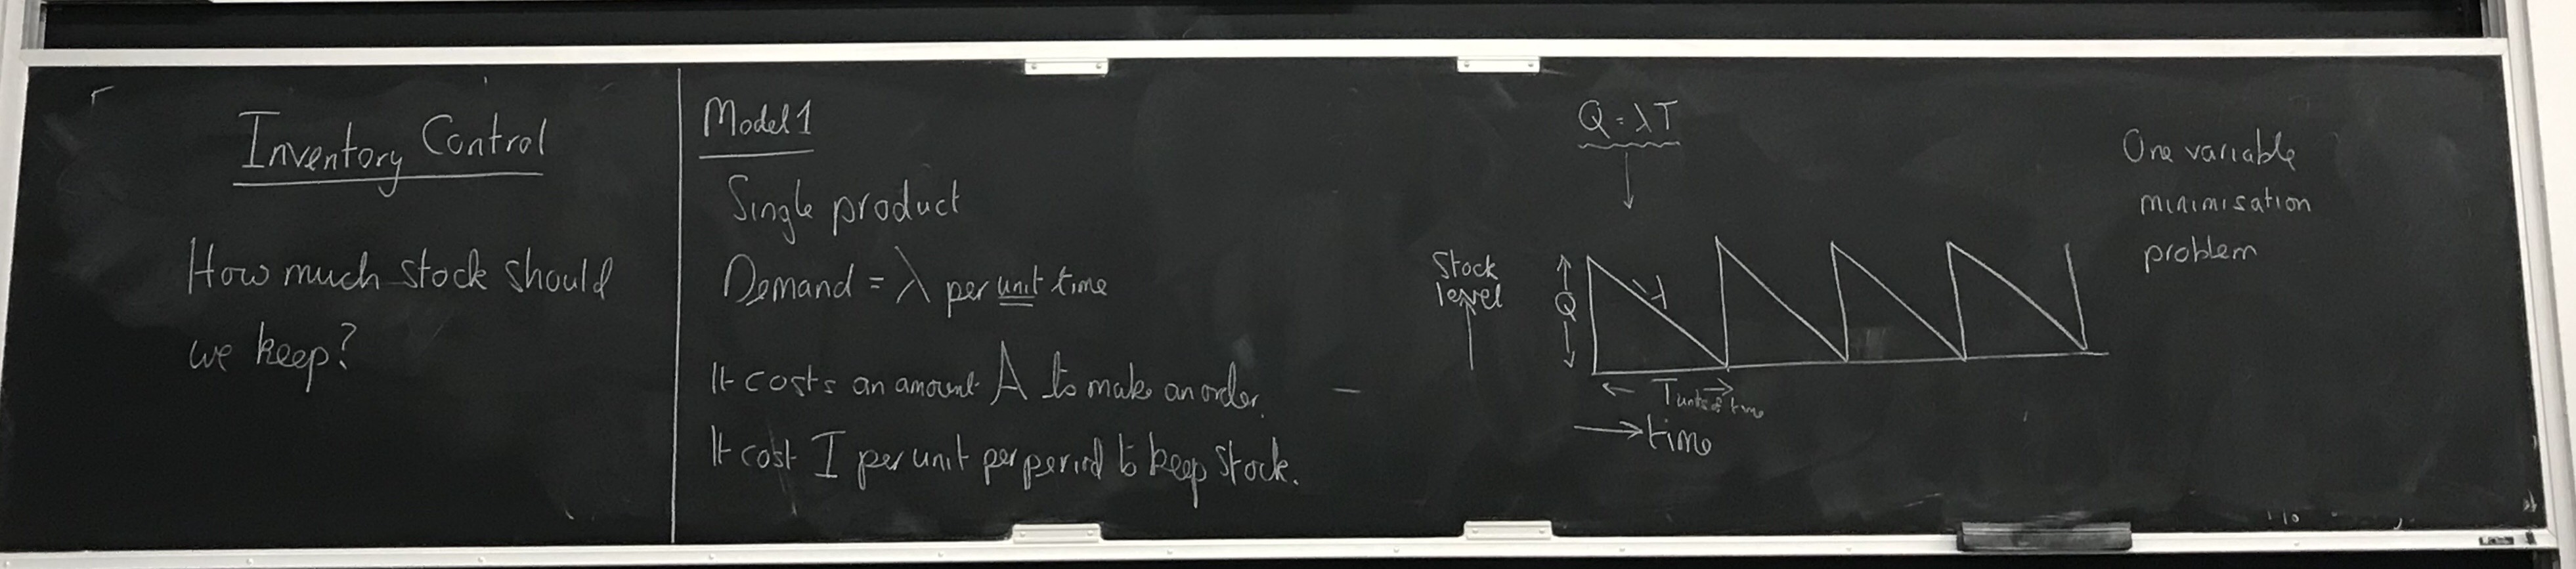 Inventory Control
How much stock should
we keep?
Model 1
Single product
Demand = λ per unit time
It costs an amount A to make an order.
It cost I per unit per period to keep stock.
Q = λT
Stock
level
Q
λ
T units of time
time
One variable
minimisation
problem